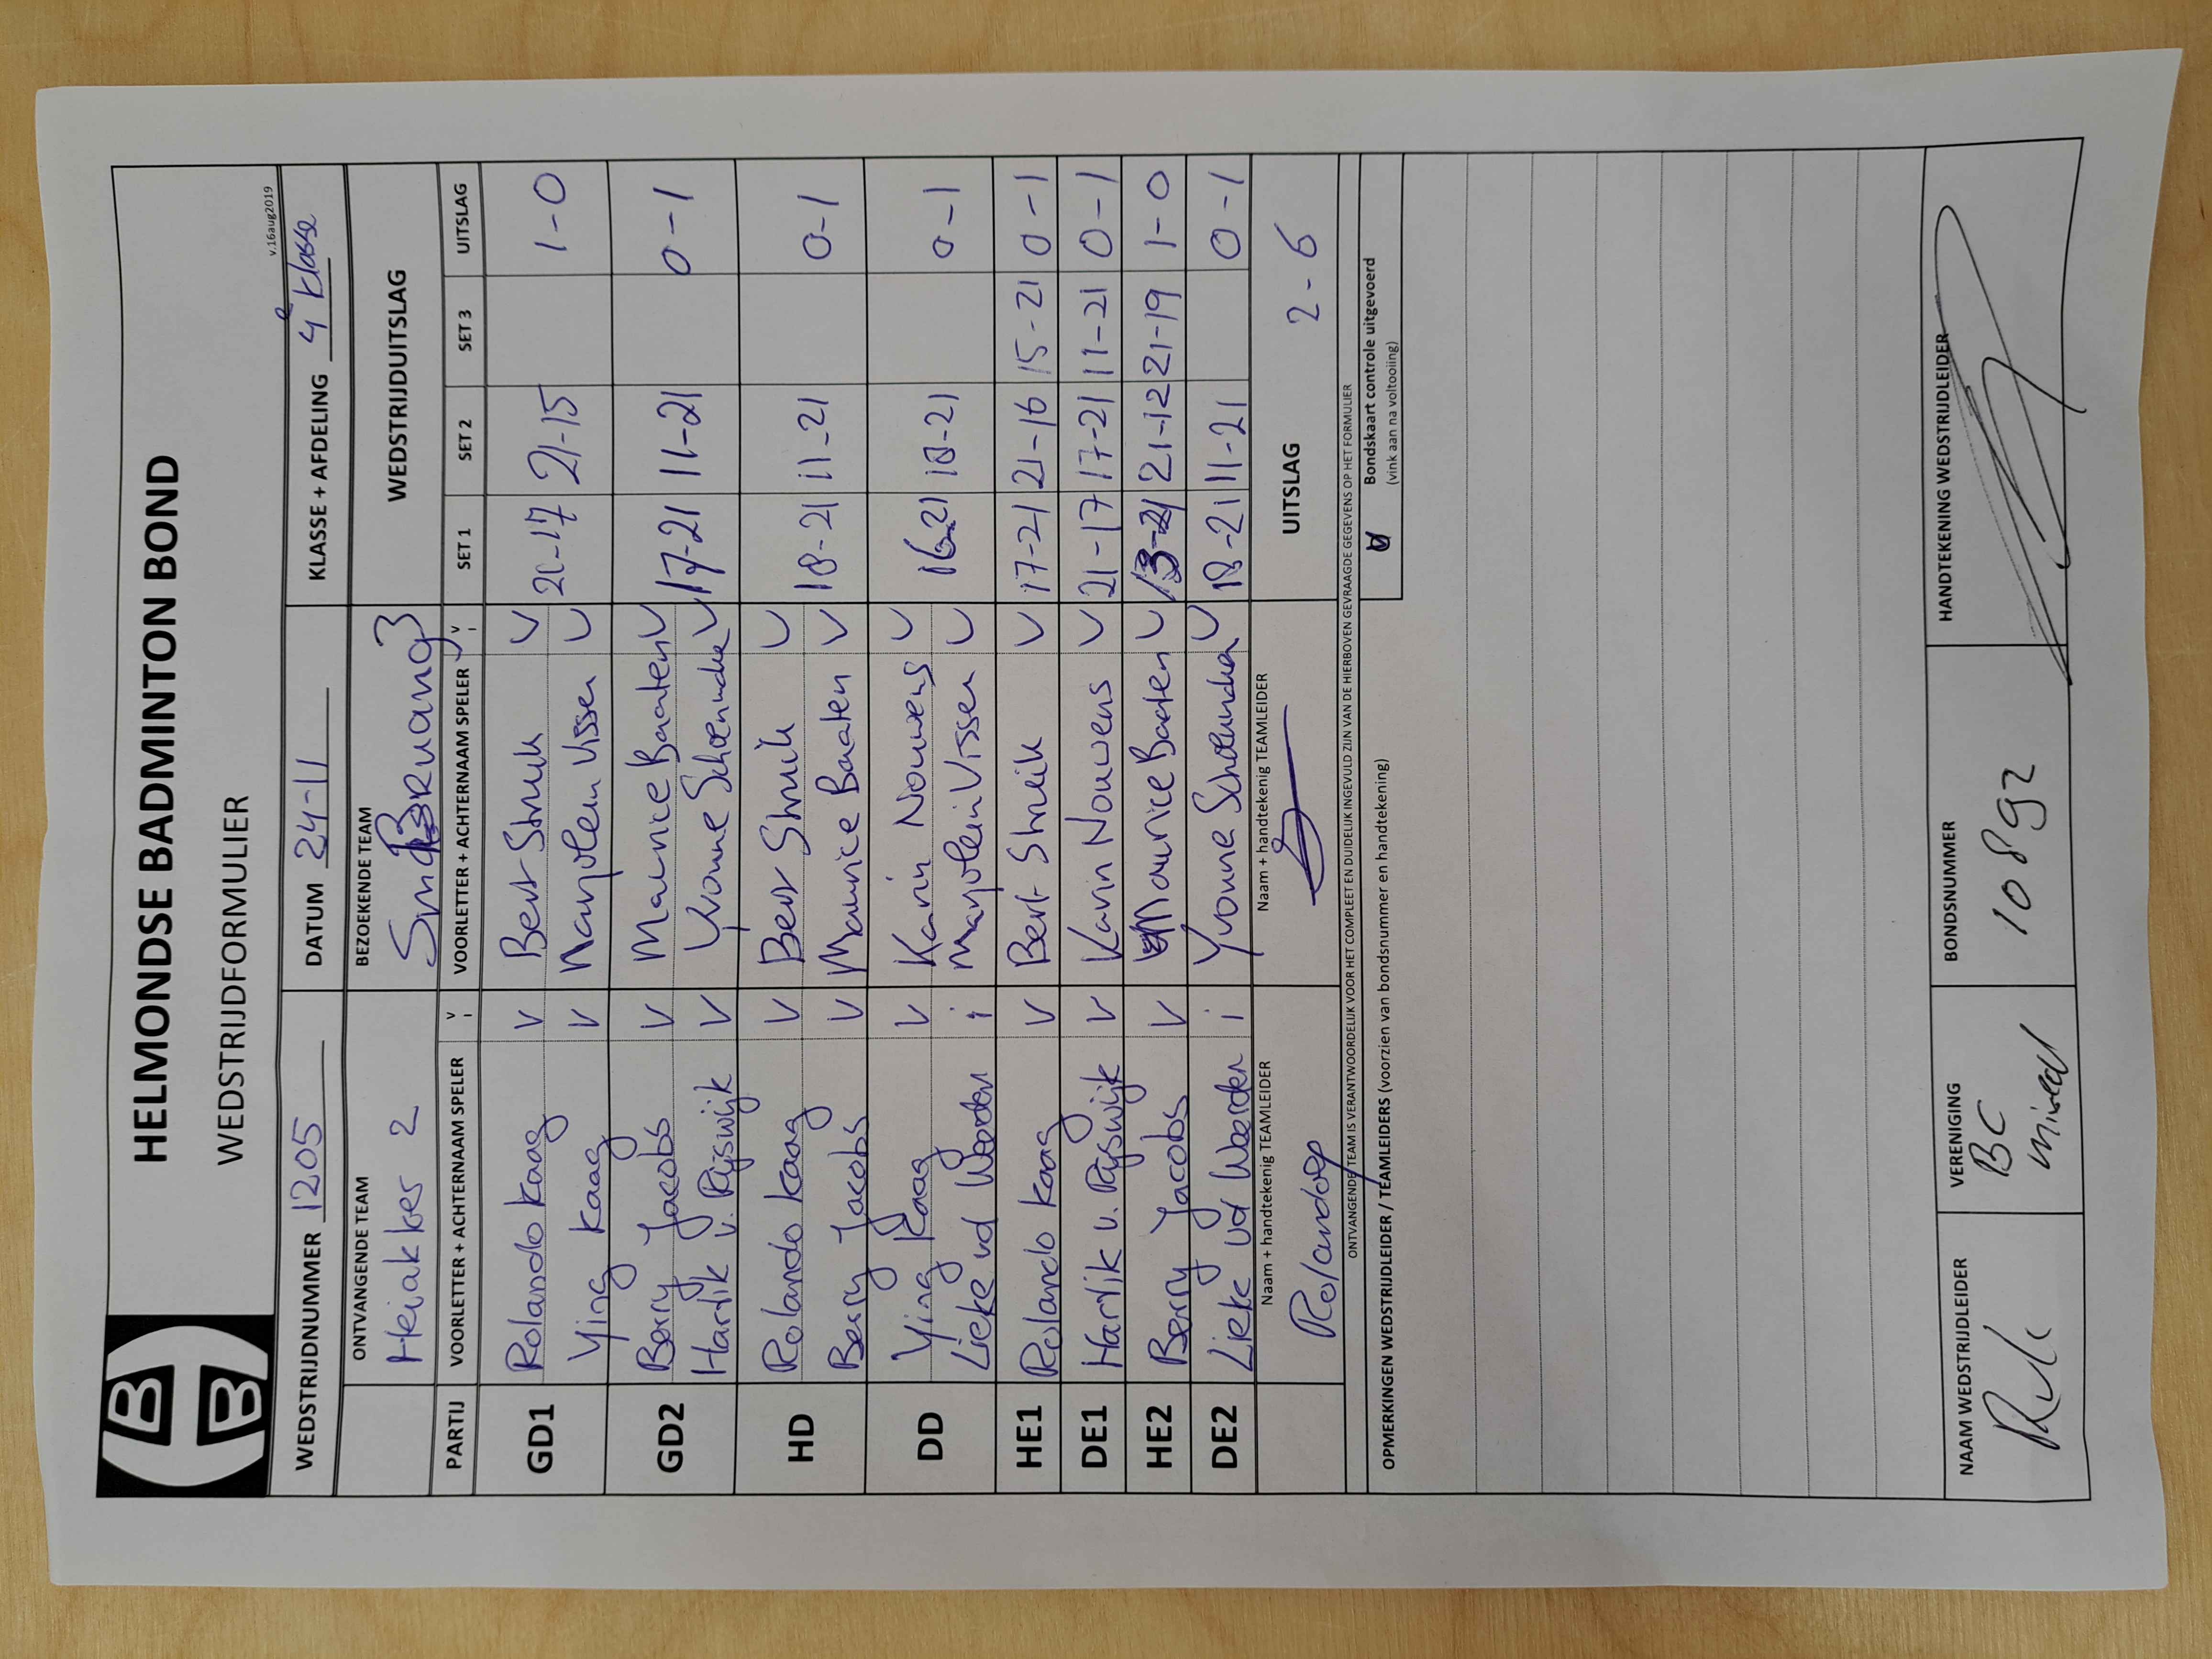 HELMONDSE BADMINTON BOND
WEDSTRIJDFORMULIER
v.16aug2019
WEDSTRIJDNUMMER 1205 DATUM 24-11 KLASSE + AFDELING 4e klasse
ONTVANGENDE TEAM BEZOEKENDE TEAM WEDSTRIJDUITSLAG
Heiakker 2
PARTIJ VOORLETTER + ACHTERNAAM SPELER V i VOORLETTER + ACHTERNAAM SPELER V i SET 1 SET 2 SET 3 UITSLAG
GD1 Rolando Kaag V Bert V 21-17 21-15 1-0
Ying Kaag V Marjolein Visser V
GD2 Berry Jacobs V Maurice Baaten V 17-21 11-21 0-1
Hardik v. Rijswijk V Yvonne V
HD Rolando Kaag V Bert V 18-21 11-21 0-1
Berry Jacobs V Maurice Baaten V
DD Ying Kaag V Karin Nouwens V 16-21 18-21 0-1
Lieke vd Weerden i Marjolein Visser V
HE1 Rolando Kaag V Bert V 17-21 21-16 15-21 0-1
DE1 Hardik v. Rijswijk V Karin Nouwens V 21-17 17-21 11-21 0-1
HE2 Berry Jacobs V Maurice Baaten V 13-21 21-12 21-19 1-0
DE2 Lieke vd Weerden i Yvonne V 18-21 11-21 0-1
Naam + handtekenig TEAMLEIDER Naam + handtekenig TEAMLEIDER UITSLAG 2-6
Rolando
ONTVANGENDE TEAM IS VERANTWOORDELIJK VOOR HET COMPLEET EN DUIDELIJK INGEVULD ZIJN VAN DE HIERBOVEN GEVRAAGDE GEGEVENS OP HET FORMULIER
OPMERKINGEN WEDSTRIJDLEIDER / TEAMLEIDERS (voorzien van bondsnummer en handtekening) Bondskaart controle uitgevoerd
(vink aan na voltooiing)
NAAM WEDSTRIJDLEIDER VERENIGING BONDSNUMMER HANDTEKENING WEDSTRIJDLEIDER
BC 10892